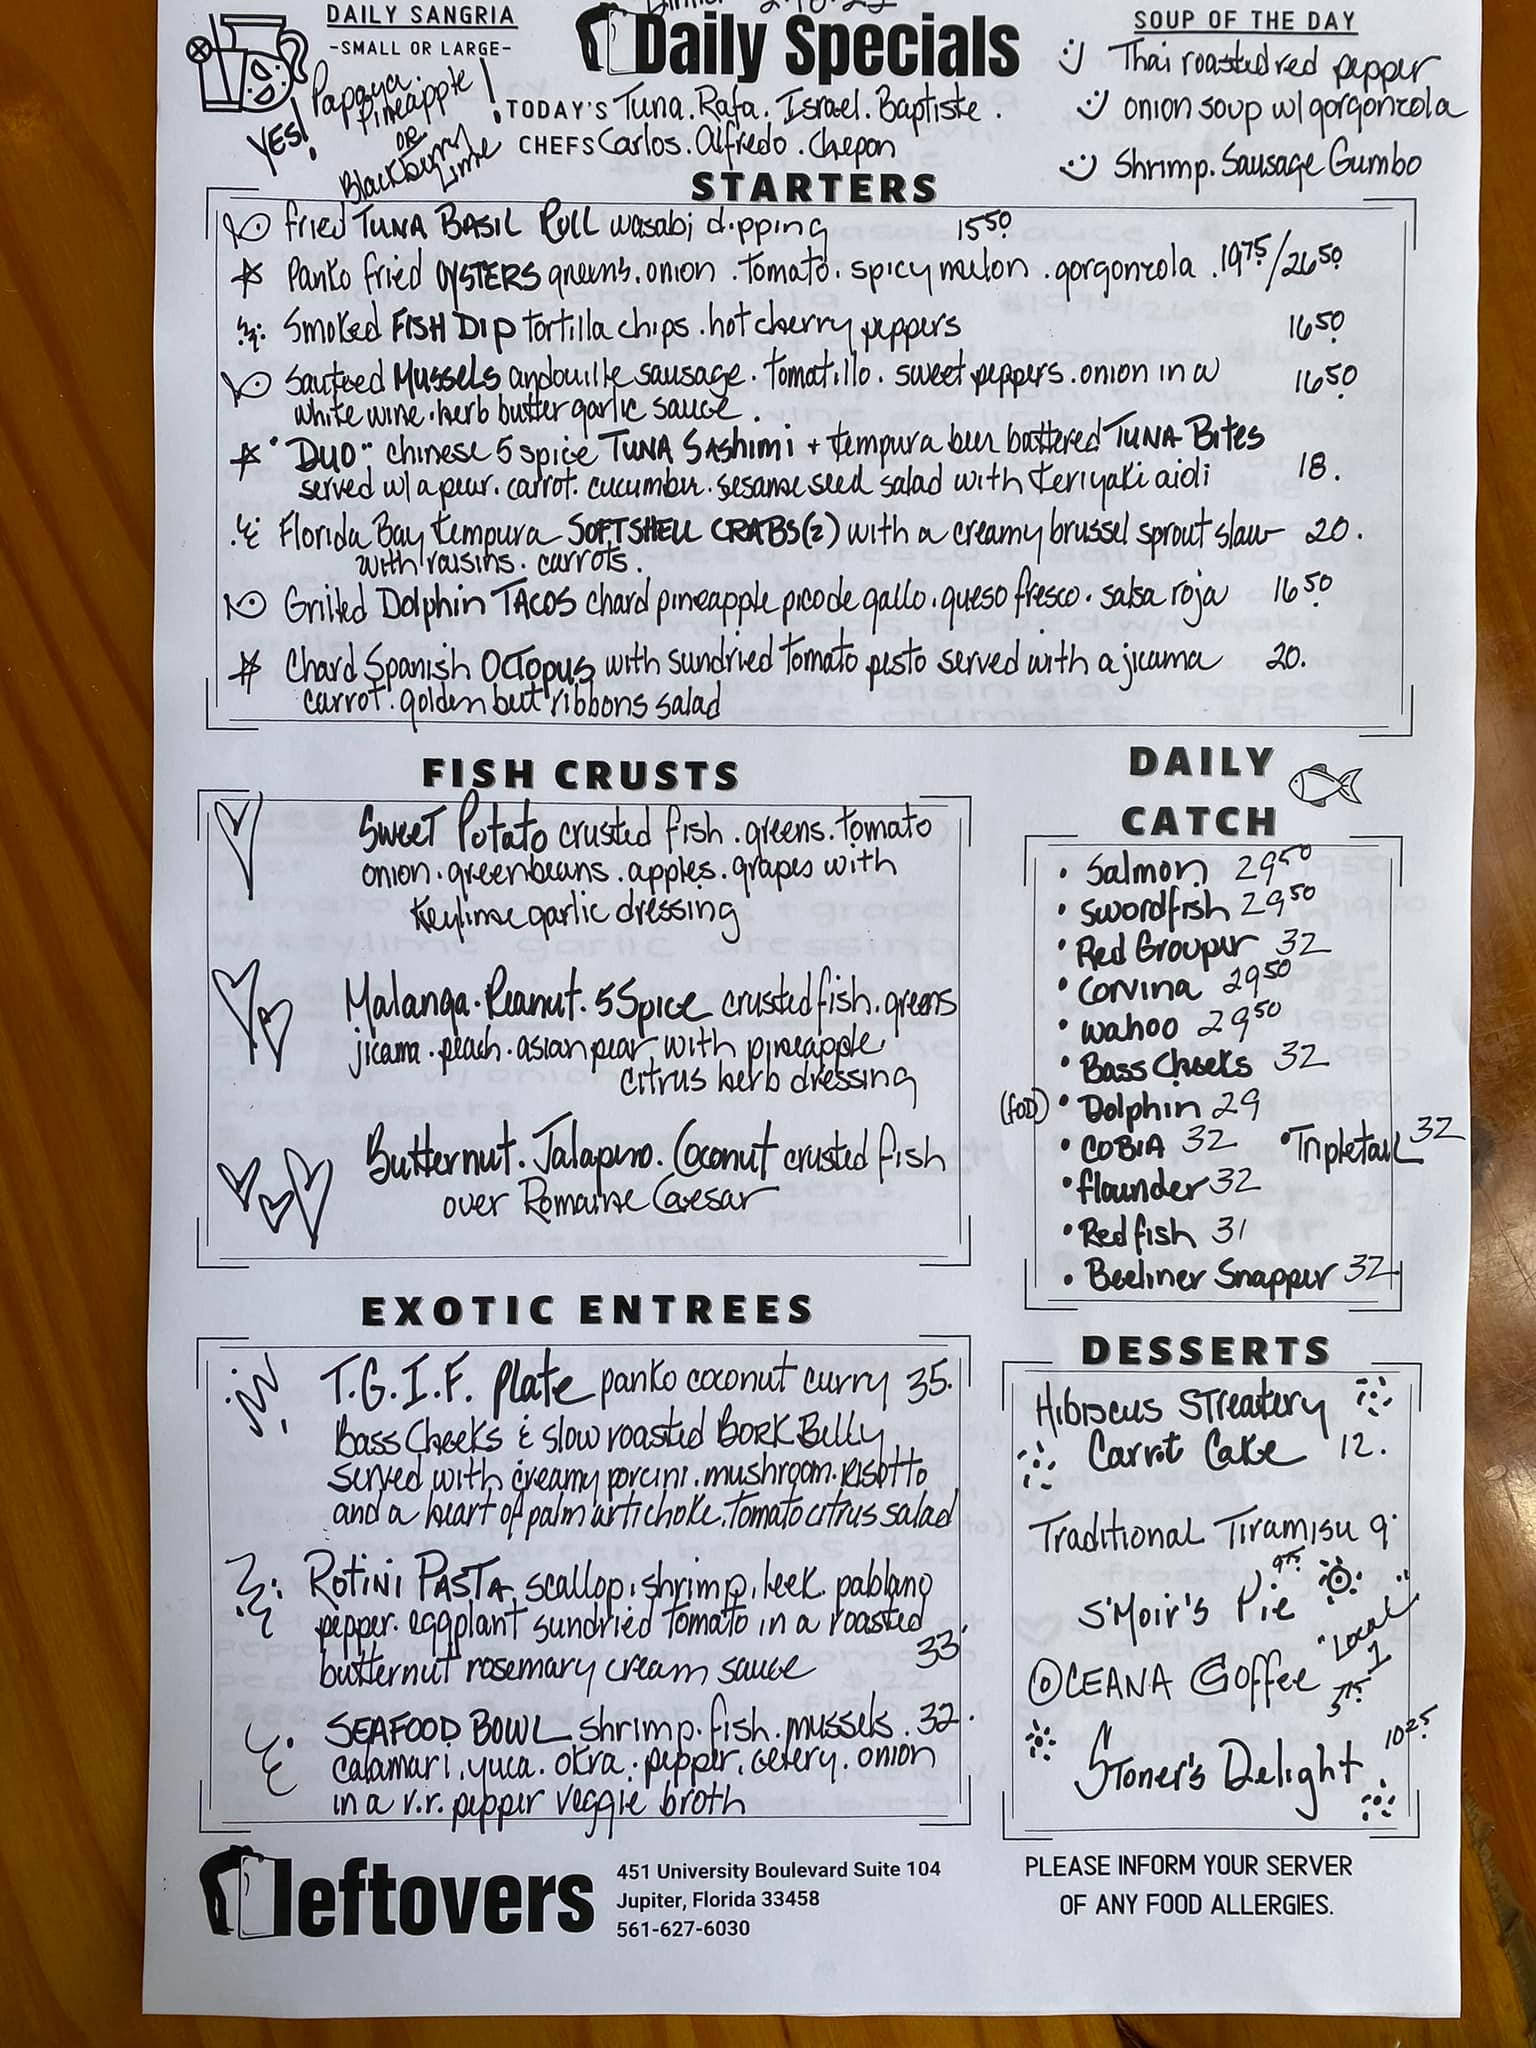 DAILY SANGRIA
-SMALL OR LARGE-
YES!
Papaya.
Pineapple!
OR
Blackberry
Lime
Daily Specials
TODAY'S Tuna. Rafa. Israel. Baptiste.
CHEFS Carlos. Alfredo. Chepon
SOUP OF THE DAY
Thai roasted red pepper
onion soup w/ gorgonzola
Shrimp. Sausage Gumbo
STARTERS
fried TUNA BASIL ROLL wasabi dipping 15 50
Panko fried OYSTERS greens. onion. tomato. spicy melon. gorgonzola. 19 75/26 50
Smoked FISH DIP tortilla chips. hot cherry peppers 16 50
Sauteed MUSSELS andouille sausage. tomatillo. sweet peppers. onion in a 16 50
white wine. herb butter garlic sauce.
"DUO" chinese 5 spice TUNA SASHIMI + tempura beer battered TUNA Bites
served w/ a pear. carrot. cucumber. sesame seed salad with teriyaki aioli 18.
Florida Bay tempura SOFTSHELL CRABS (2) with a creamy brussel sprout slaw 20.
with raisins. carrots.
Grilled Dolphin TACOS chard pineapple pico de gallo. queso fresco. salsa roja 16 50
Chard Spanish OCTOPUS with sundried tomato pesto served with a jicama 20.
carrot. golden beet ribbons salad
FISH CRUSTS
Sweet Potato crusted fish. greens. tomato
onion. greenbeans. apples. grapes with
Keylime garlic dressing
Malanga. Peanut. 5 Spice crusted fish. greens
jicama. peach. asian pear with pineapple
citrus herb dressing
Butternut. Jalapeno. Coconut crusted fish
over Romaine Caesar
DAILY
CATCH
• Salmon 29 50
• Swordfish 29 50
• Red Grouper 32
• Corvina 29 50
• Wahoo 29 50
• Bass Cheeks 32
(FOD) • Dolphin 29
• COBIA 32 • Tripletail 32
• flounder 32
• Redfish 31
• Beeliner Snapper 32
EXOTIC ENTREES
T.G.I.F. Plate panko coconut curry 35.
Bass Cheeks & slow roasted PORK Belly
served with creamy porcini. mushroom. risotto
and a heart of palm artichoke. tomato citrus salad
ROTINI PASTA scallop. shrimp. leek. pablano
pepper. eggplant sundried tomato in a roasted
butternut rosemary cream sauce 33.
SEAFOOD BOWL shrimp. fish. mussels. 32.
calamari. yuca. okra. pepper. celery. onion
in a r.r. pepper veggie broth
DESSERTS
Hibiscus Streatery
Carrot Cake 12.
Traditional Tiramisu 9.
S'Moir's Pie 9 75
OCEANA Coffee "Local"
Stoner's Delight 10 25
leftovers
451 University Boulevard Suite 104
Jupiter, Florida 33458
561-627-6030
PLEASE INFORM YOUR SERVER
OF ANY FOOD ALLERGIES.